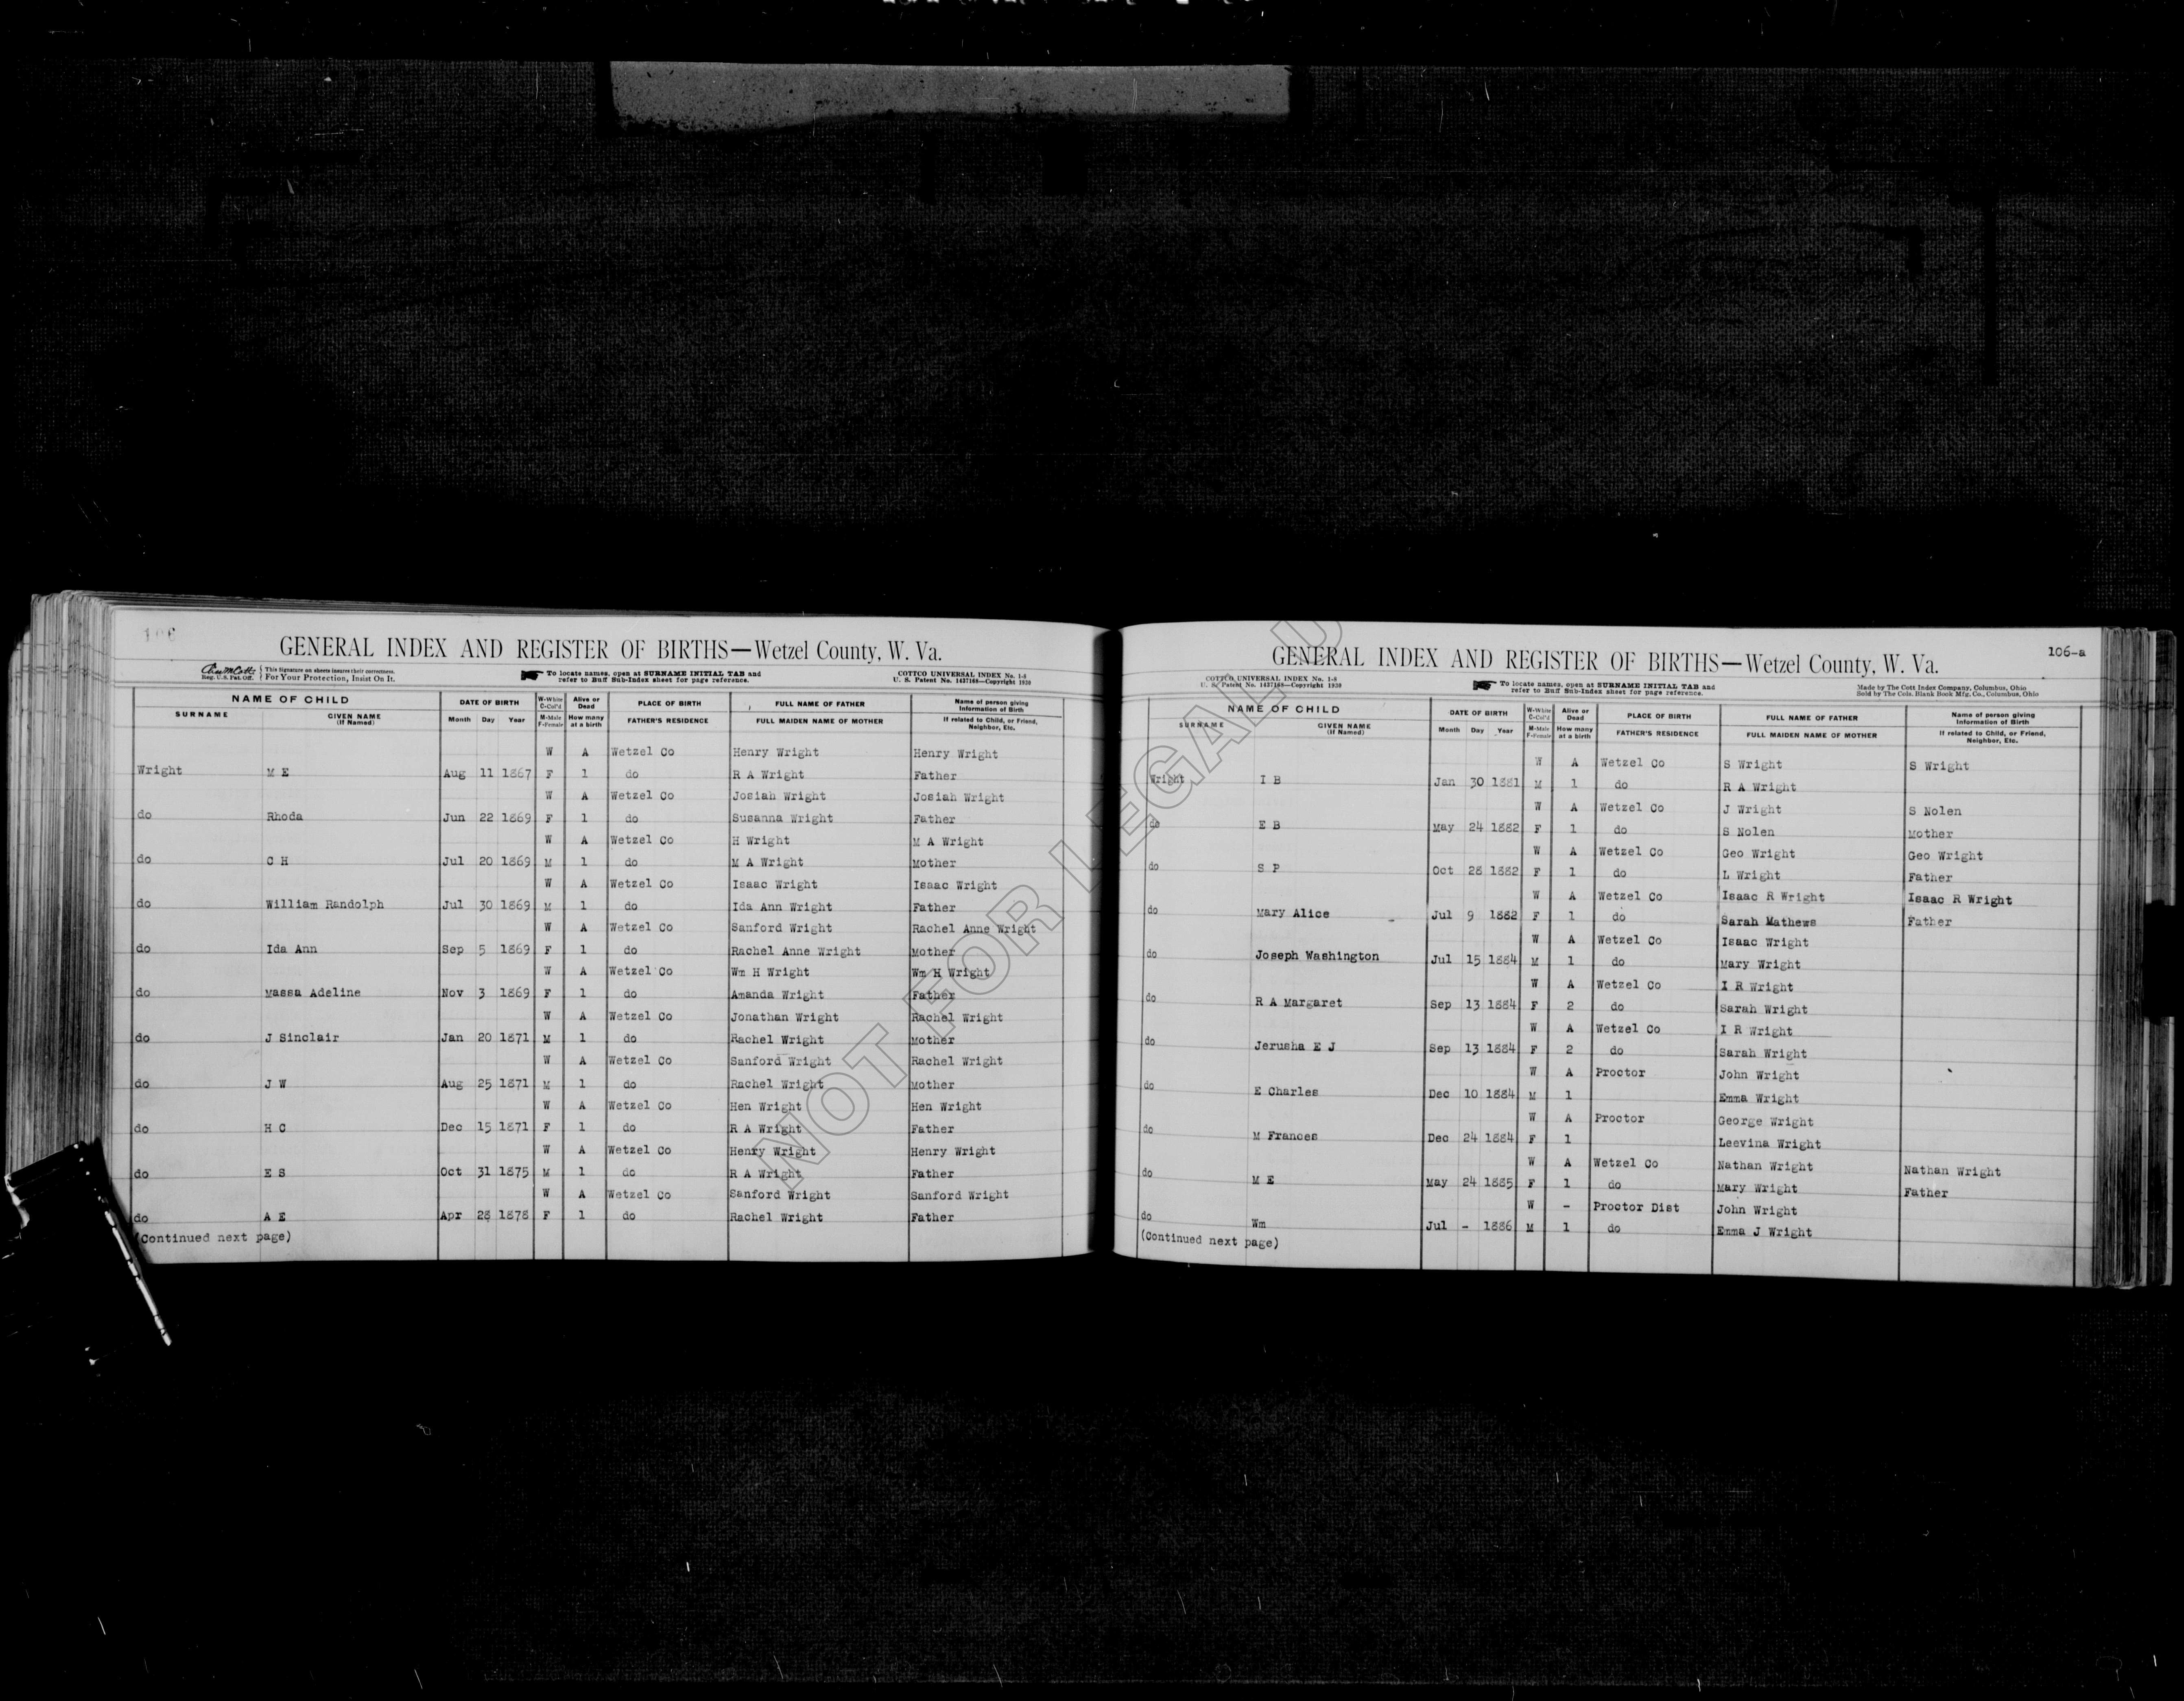 106
GENERAL INDEX AND REGISTER OF BIRTHS—Wetzel County, W. Va.
Reg. U.S. Pat. Off. { This signature on sheets insures their correctness. For Your Protection, Insist On It.
To locate names, open at SURNAME INITIAL TAB and refer to Buff Sub-Index sheet for page reference.
COTTCO UNIVERSAL INDEX No. 1-8
U. S. Patent No. 1437168—Copyright 1930
NAME OF CHILD DATE OF BIRTH W-White C-Col'd Alive or Dead PLACE OF BIRTH FULL NAME OF FATHER Name of person giving Information of Birth
SURNAME GIVEN NAME (If Named) Month Day Year M-Male F-Female How many at a birth FATHER'S RESIDENCE FULL MAIDEN NAME OF MOTHER If related to Child, or Friend, Neighbor, Etc.
W A Wetzel Co Henry Wright Henry Wright
Wright M E Aug 11 1867 F 1 do R A Wright Father
W A Wetzel Co Josiah Wright Josiah Wright
do Rhoda Jun 22 1869 F 1 do Susanna Wright Father
W A Wetzel Co H Wright M A Wright
do C H Jul 20 1869 M 1 do M A Wright Mother
W A Wetzel Co Isaac Wright Isaac Wright
do William Randolph Jul 30 1869 M 1 do Ida Ann Wright Father
W A Wetzel Co Sanford Wright Rachel Anne Wright
do Ida Ann Sep 5 1869 F 1 do Rachel Anne Wright Mother
W A Wetzel Co Wm H Wright Wm H Wright
do Massa Adeline Nov 3 1869 F 1 do Amanda Wright Father
W A Wetzel Co Jonathan Wright Rachel Wright
do J Sinclair Jan 20 1871 M 1 do Rachel Wright Mother
W A Wetzel Co Sanford Wright Rachel Wright
do J W Aug 25 1871 M 1 do Rachel Wright Mother
W A Wetzel Co Hen Wright Hen Wright
do H C Dec 15 1871 F 1 do R A Wright Father
W A Wetzel Co Henry Wright Henry Wright
do E S Oct 31 1875 M 1 do R A Wright Father
W A Wetzel Co Sanford Wright Sanford Wright
do A E Apr 28 1878 F 1 do Rachel Wright Father
(Continued next page)
106-a
GENERAL INDEX AND REGISTER OF BIRTHS—Wetzel County, W. Va.
COTTCO UNIVERSAL INDEX No. 1-8
U. S. Patent No. 1437168—Copyright 1930
To locate names, open at SURNAME INITIAL TAB and refer to Buff Sub-Index sheet for page reference.
Made by The Cott Index Company, Columbus, Ohio
Sold by The Cols. Blank Book Mfg. Co., Columbus, Ohio
NAME OF CHILD DATE OF BIRTH W-White C-Col'd Alive or Dead PLACE OF BIRTH FULL NAME OF FATHER Name of person giving Information of Birth
SURNAME GIVEN NAME (If Named) Month Day Year M-Male F-Female How many at a birth FATHER'S RESIDENCE FULL MAIDEN NAME OF MOTHER If related to Child, or Friend, Neighbor, Etc.
W A Wetzel Co S Wright S Wright
Wright I B Jan 30 1881 M 1 do R A Wright
W A Wetzel Co J Wright S Nolen
do E B May 24 1882 F 1 do S Nolen Mother
W A Wetzel Co Geo Wright Geo Wright
do S P Oct 28 1882 F 1 do L Wright Father
W A Wetzel Co Isaac R Wright Isaac R Wright
do Mary Alice Jul 9 1882 F 1 do Sarah Mathews Father
W A Wetzel Co Isaac Wright
do Joseph Washington Jul 15 1884 M 1 do Mary Wright
W A Wetzel Co I R Wright
do R A Margaret Sep 13 1884 F 2 do Sarah Wright
W A Wetzel Co I R Wright
do Jerusha E J Sep 13 1884 F 2 do Sarah Wright
W A Proctor John Wright
do E Charles Dec 10 1884 M 1 Emma Wright
W A Proctor George Wright
do M Frances Dec 24 1884 F 1 Leevina Wright
W A Wetzel Co Nathan Wright Nathan Wright
do M E May 24 1885 F 1 do Mary Wright Father
W - Proctor Dist John Wright
do Wm Jul - 1886 M 1 do Emma J Wright
(Continued next page)
NOT FOR LEGAL U